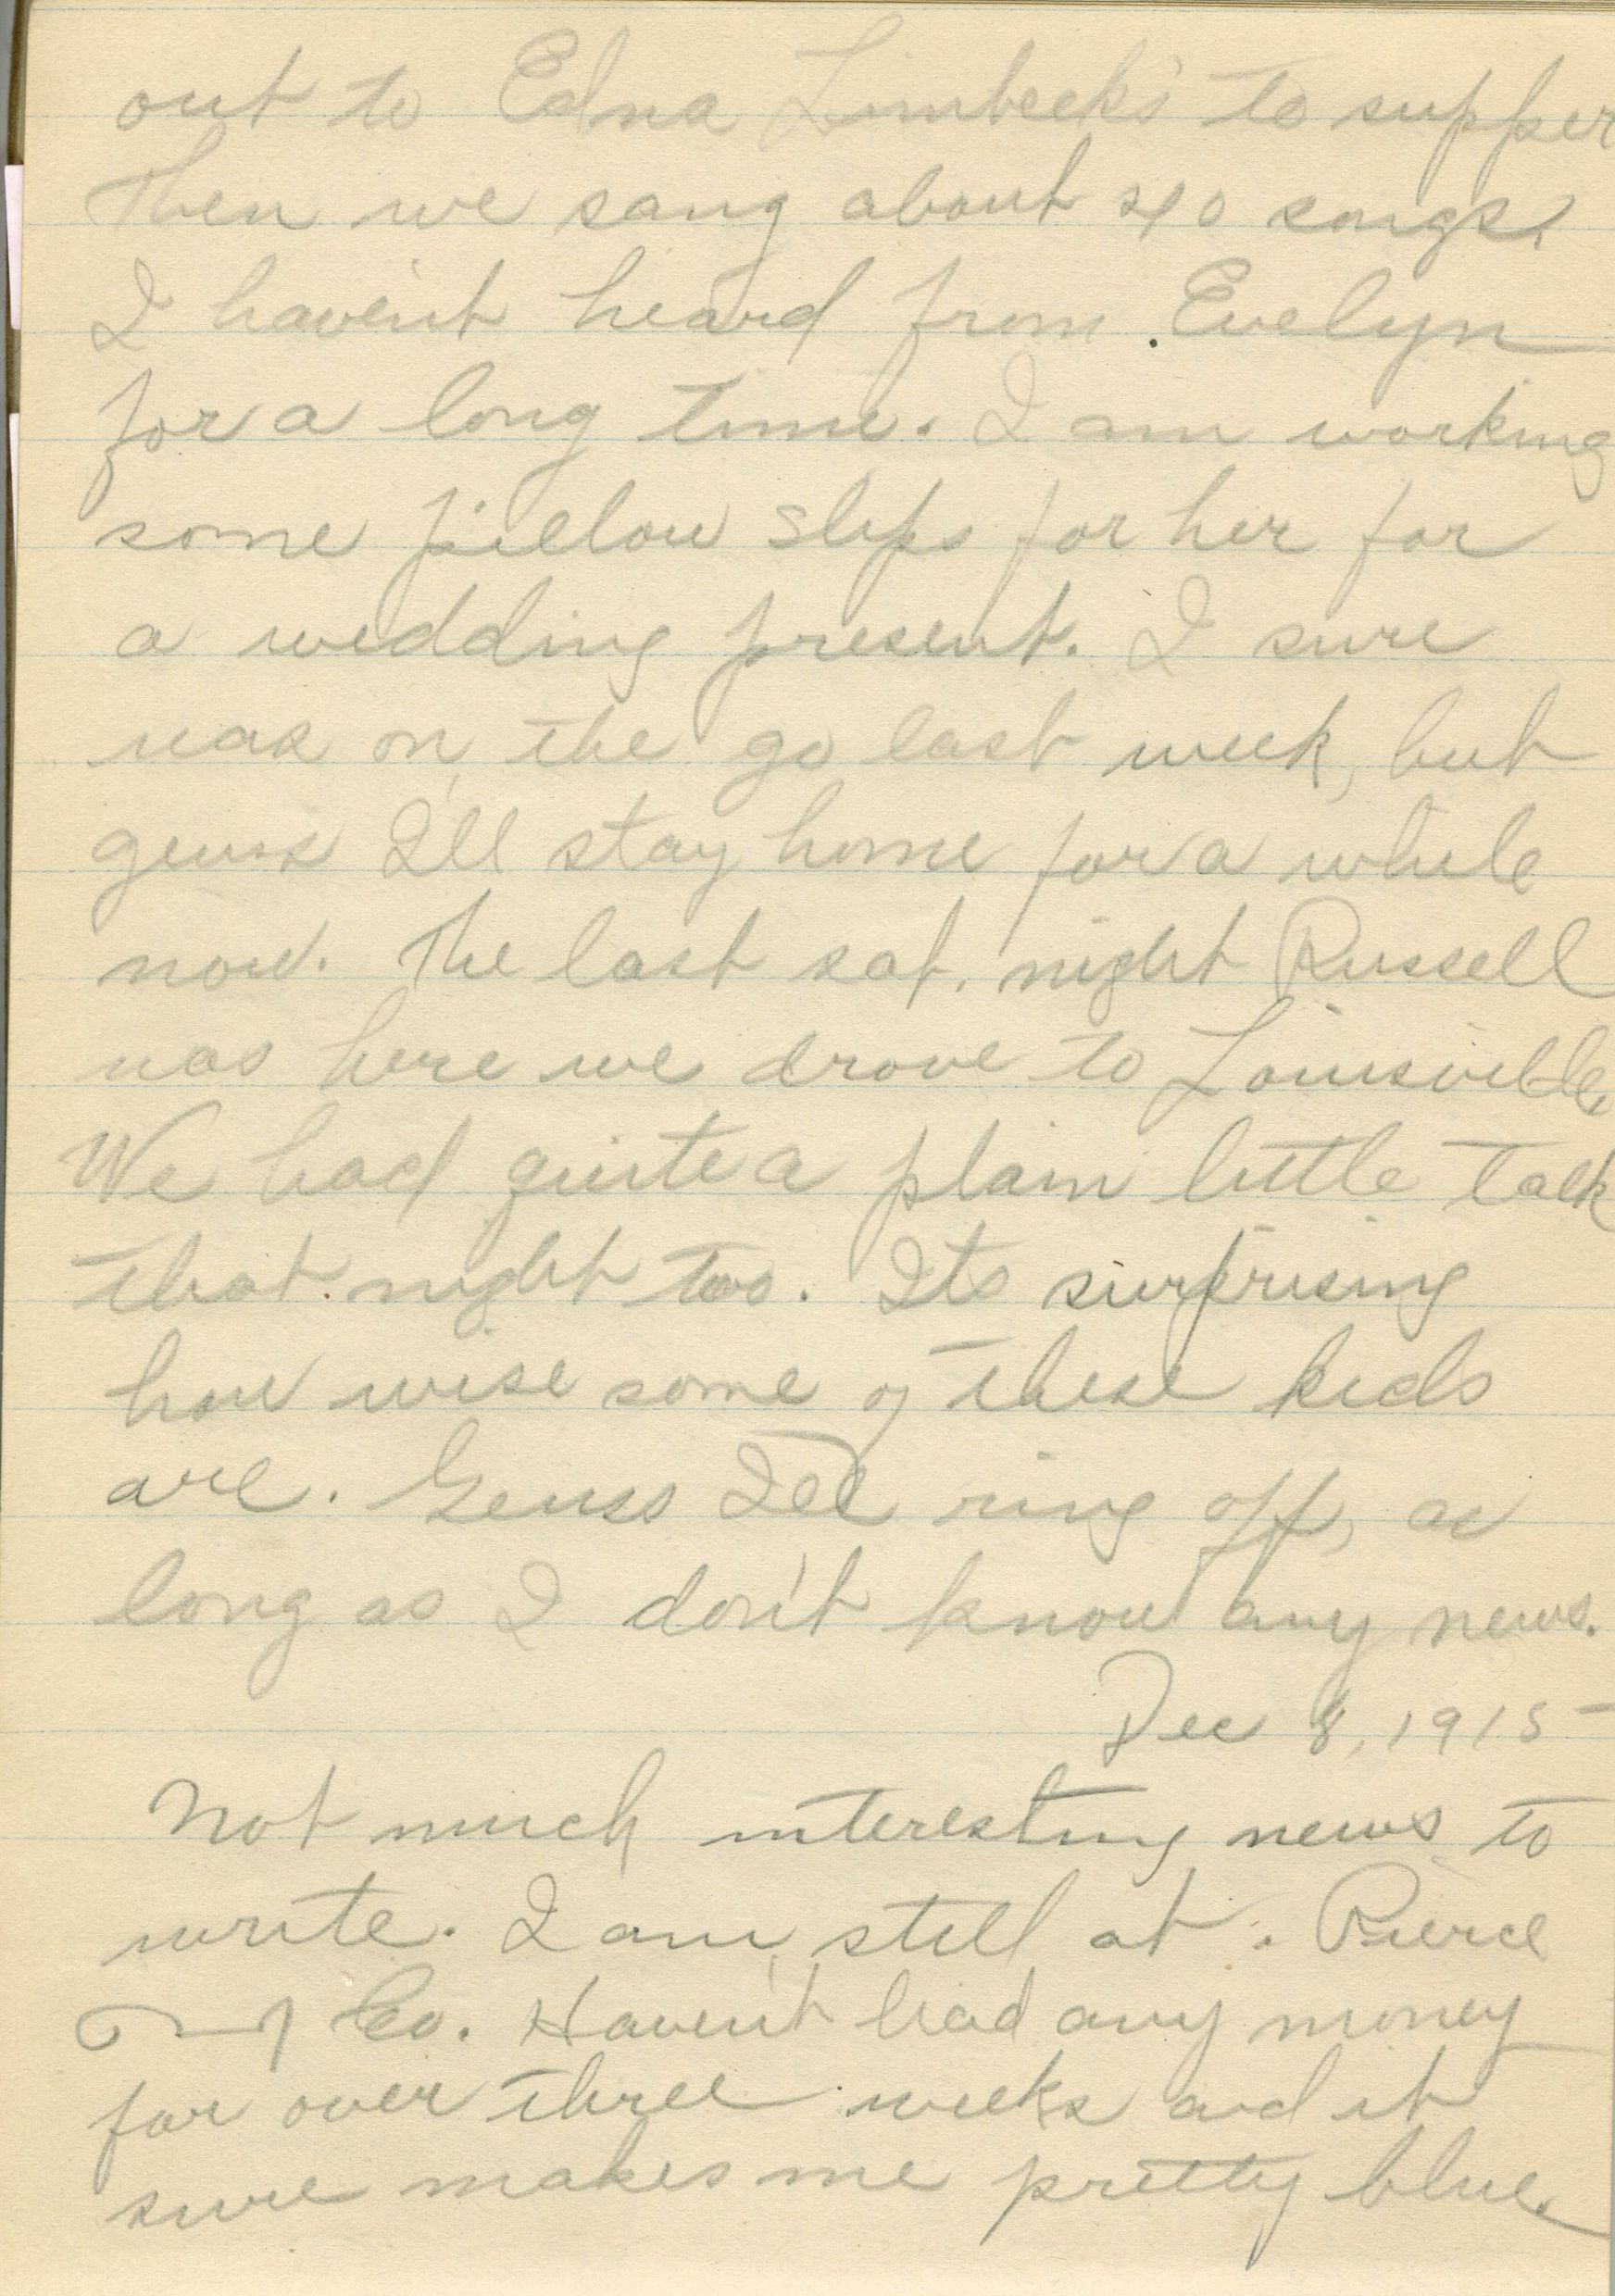 out to Edna Limbeck's to supper
Then we sang about 40 songs.
I haven't heard from Evelyn
for a long time. I am working
some pillow slips for her for
a wedding present. I sure
was on the go last week, but
geuss I'll stay home for a while
now. The last sat. night Russell
was here we drove to Louisville.
We had quite a plain little talk
that night too. Its surprising
how wise some of these kids
are. Geuss I'll ring off, as
long as I don't know any news.
Dec 8, 1915
Not much interesting news to
write. I am still at Pierce
Co. Haven't had any money
for over three weeks and it
sure makes me pretty blue.